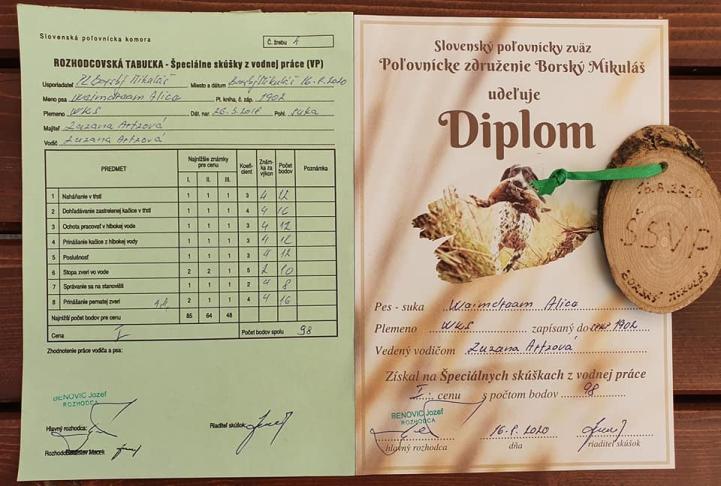 Slovenská poľovnícka komora
Č. žrebu 4
ROZHODCOVSKÁ TABUĽKA - Špeciálne skúšky z vodnej práce (VP)
Usporiadateľ PZ Borský Mikuláš Miesto a dátum Borský Mikuláš 16.8.2020
Meno psa Waimdream Alica Pl. kniha, č. záp. 1902
Plemeno WKS Dát. nar. Pohl. suka
Majiteľ Zuzana Artzová
Vodič Zuzana Artzová
PREDMET Najnižšie známky pre cenu I. II. III. Koeficient Známka za výkon Počet bodov Poznámka
1 Naháňanie v tŕstí 1 1 1 3 4 12
2 Dohľadávanie zastrelenej kačice v tŕstí 1 1 1 4 4 16
3 Ochota pracovať v hlbokej vode 1 1 1 3 4 12
4 Prinášanie kačice z hlbokej vody 1 1 1 3 4 12
5 Poslušnosť 1 1 1 3 4 12
6 Stopa zveri vo vode 2 2 1 5 2 10
7 Správanie sa na stanovišti 1 1 1 2 4 8
8 Prinášanie pernatej zveri 2 1 1 4 4 16
Najnižší počet bodov pre cenu 85 64 48
Cena I Počet bodov spolu 98
Zhodnotenie práce vodiča a psa:
BENOVIC Jozef
ROZHODCA
Hlavný rozhodca: Riaditeľ skúšok:
Slovenský poľovnícky zväz
Poľovnícke združenie Borský Mikuláš
udeľuje
Diplom
Pes - suka Waimdream Alica
Plemeno WKS zapísaný do 1902
Vedený vodičom Zuzana Artzová
Získal na Špeciálnych skúškach z vodnej práce
I. cenu s počtom bodov 98
BENOVIC Jozef
ROZHODCA
16.8.2020
hlavný rozhodca dňa riaditeľ skúšok
16.8.2020
ŠSVP
BORSKÝ MIKULÁŠ